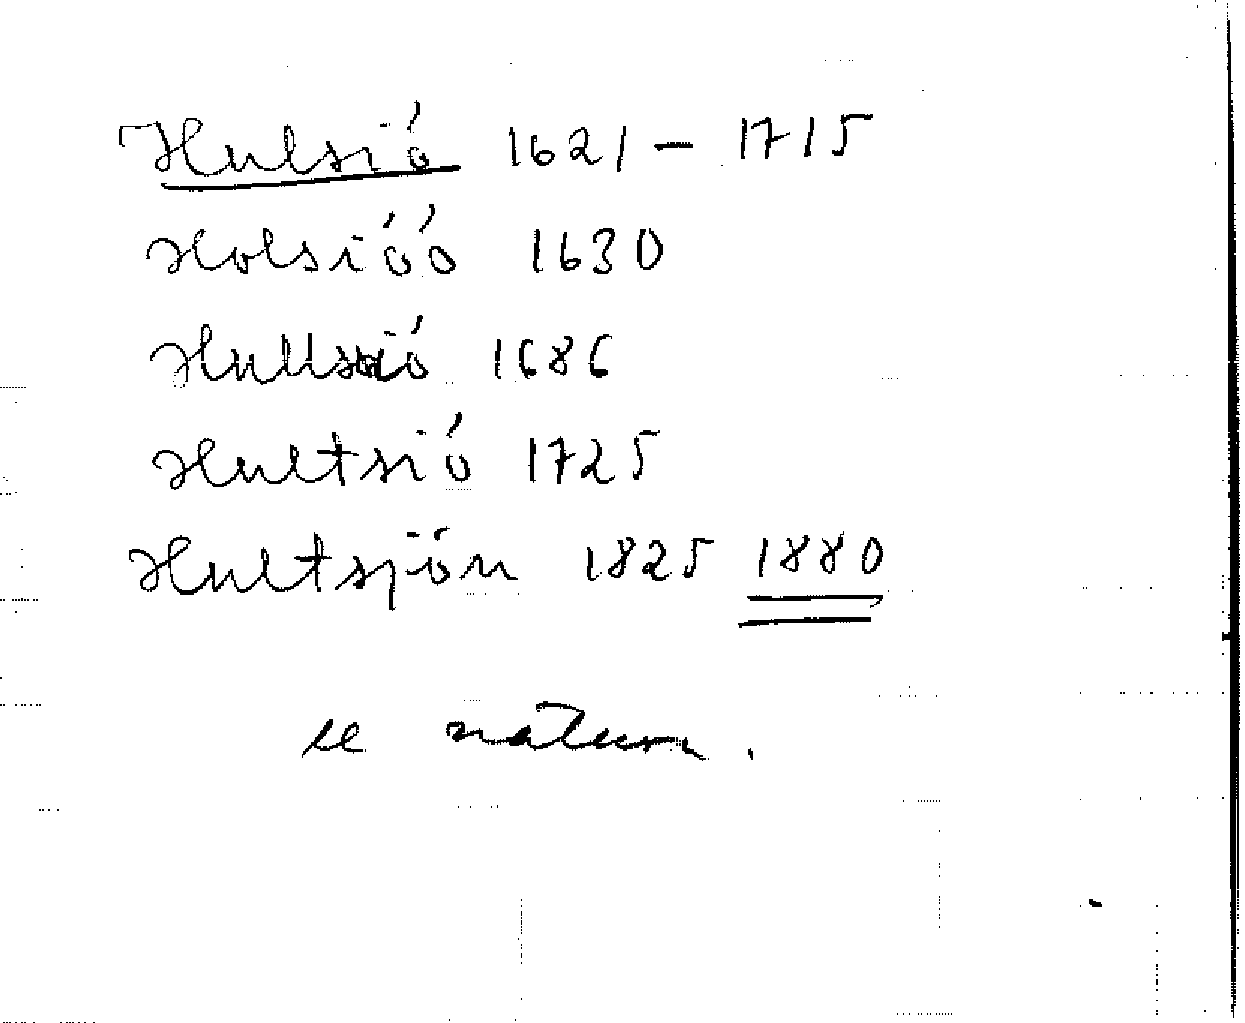 Hulsió 1621 – 1715
Holsióó 1630
Hullsió 1686
Hultsió 1725
Hultsjön 1825 1880
se naturn.